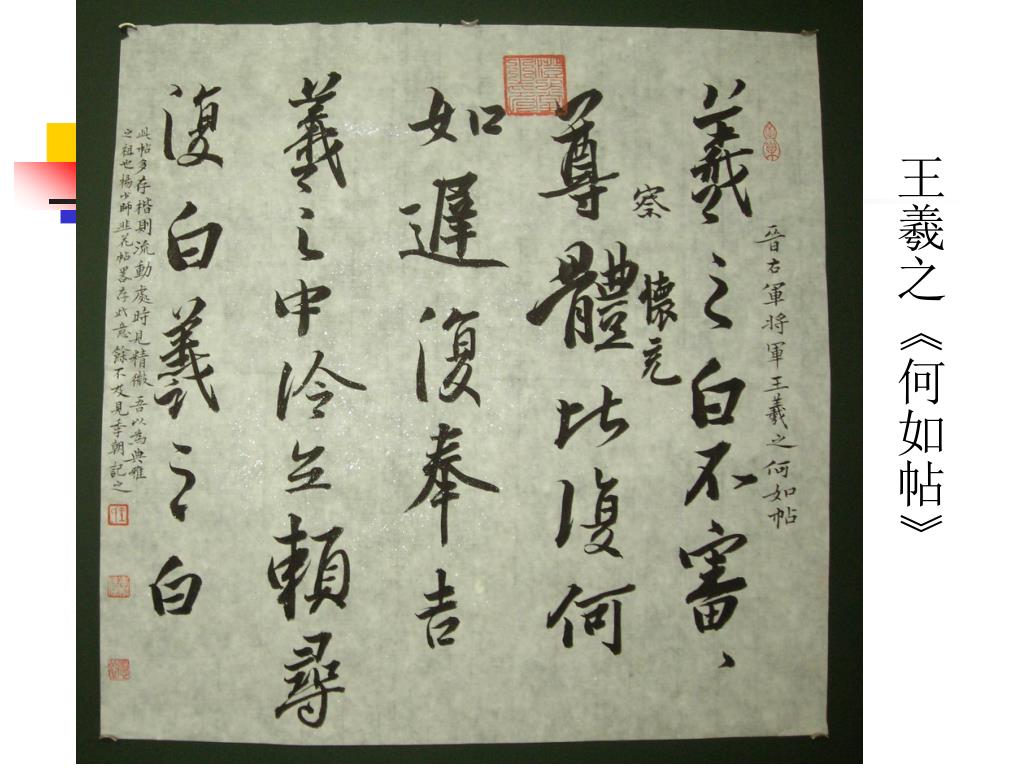 王羲之《何如帖》
晉右軍将軍王羲之何如帖
羲之白不審、、
察 懷充
尊體比復何
如遲復奉告
羲之中冷无賴尋
復白羲之白
此帖多存楷則流動處時見精微吾以為典雅
之祖也楊少師韭花帖畧存此意餘不及見季朝記之